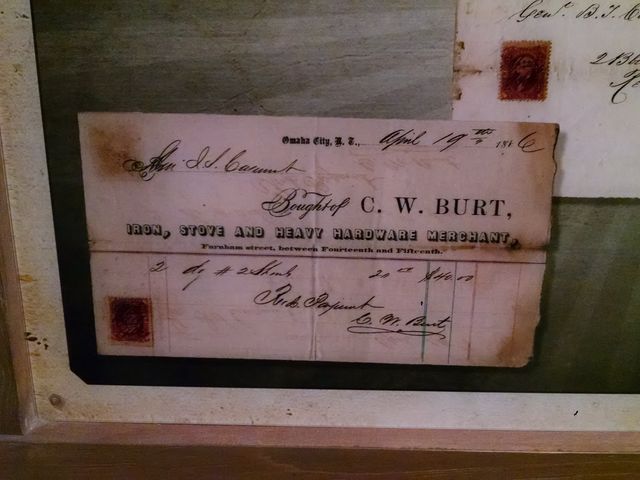 Genl. B. T.
2
Omaha City, N. T., April 19th 1866
Genl J. S. Casement
Bought of C. W. BURT,
IRON, STOVE AND HEAVY HARDWARE MERCHANT,
Farnham street, between Fourteenth and Fifteenth.
2 dz # 2 Shovels 20 00 $40.00
Recd. Payment
C. W. Burt